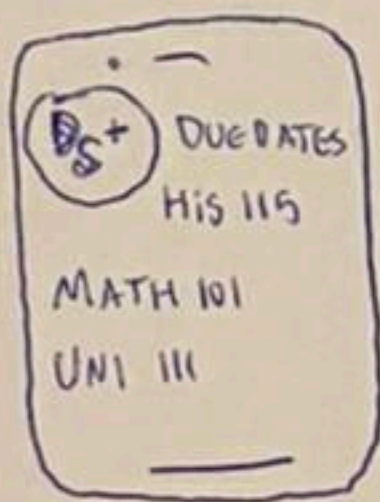 DS+ DUE DATES
HiS 115
MATH 101
UNI 111